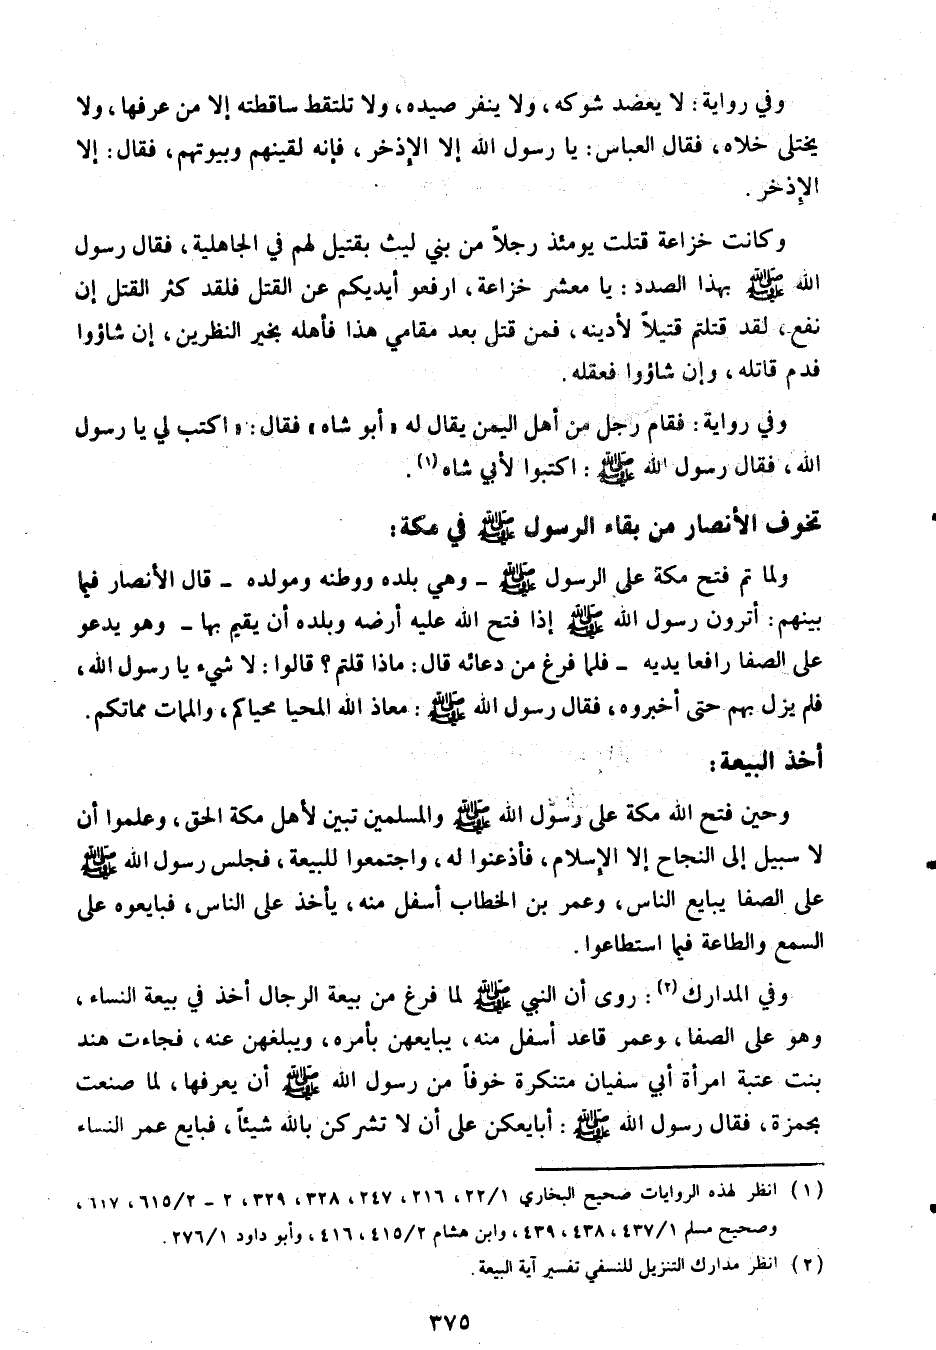 وفي رواية: لا يعضد شوكه، ولا ينفر صيده، ولا تلتقط ساقطته إلا من عرفها، ولا
يختلى خلاه، فقال العباس: يا رسول الله إلا الإذخر، فإنه لقينهم وبيوتهم، فقال: إلا
الإذخر.
وكانت خزاعة قتلت يومئذ رجلاً من بني ليث بقتيل لهم في الجاهلية، فقال رسول
الله ﷺ بهذا الصدد: يا معشر خزاعة، ارفعو أيديكم عن القتل فلقد كثر القتل إن
نفع، لقد قتلتم قتيلاً لأدينه، فمن قتل بعد مقامي هذا فأهله بخير النظرين، إن شاؤوا
فدم قاتله، وإن شاؤوا فعقله.
وفي رواية: فقام رجل من أهل اليمن يقال له «أبو شاه» فقال: «اكتب لي يا رسول
الله، فقال رسول الله ﷺ: اكتبوا لأبي شاه(١).
تخوف الأنصار من بقاء الرسول ﷺ في مكة:
ولما تم فتح مكة على الرسول ﷺ – وهي بلده ووطنه ومولده – قال الأنصار فيما
بينهم: أترون رسول الله ﷺ إذا فتح الله عليه أرضه وبلده أن يقيم بها – وهو يدعو
على الصفا رافعا يديه – فلما فرغ من دعائه قال: ماذا قلتم؟ قالوا: لا شيء يا رسول الله،
فلم يزل بهم حتى أخبروه، فقال رسول الله ﷺ: معاذ الله المحيا محياكم، والممات مماتكم.
أخذ البيعة:
وحين فتح الله مكة على رسول الله ﷺ والمسلمين تبين لأهل مكة الحق، وعلموا أن
لا سبيل إلى النجاح إلا الإسلام، فأذعنوا له، واجتمعوا للبيعة، فجلس رسول الله ﷺ
على الصفا يبايع الناس، وعمر بن الخطاب أسفل منه، يأخذ على الناس، فبايعوه على
السمع والطاعة فيما استطاعوا.
وفي المدارك(٢): روى أن النبي ﷺ لما فرغ من بيعة الرجال أخذ في بيعة النساء،
وهو على الصفا، وعمر قاعد أسفل منه، يبايعهن بأمره، ويبلغهن عنه، فجاءت هند
بنت عتبة امرأة أبي سفيان متنكرة خوفاً من رسول الله ﷺ أن يعرفها، لما صنعت
بحمزة، فقال رسول الله ﷺ: أبايعكن على أن لا تشركن بالله شيئاً، فبايع عمر النساء
(١) انظر لهذه الروايات صحيح البخاري ٢٢/١، ٢١٦، ٢٤٧، ٣٢٨، ٣٢٩، ٢ – ٦١٥/٢، ٦١٧،
وصحيح مسلم ٤٣٧/١، ٤٣٨، ٤٣٩، وابن هشام ٤١٥/٢، ٤١٦، وأبو داود ٢٧٦/١.
(٢) انظر مدارك التنزيل للنسفي تفسير آية البيعة.
٣٧٥